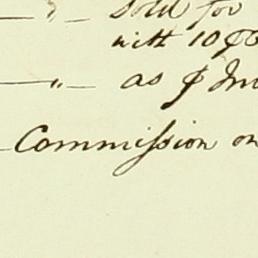 — " — Sold for
with 10 ⅌
— " — as ⅌ In
Commission on